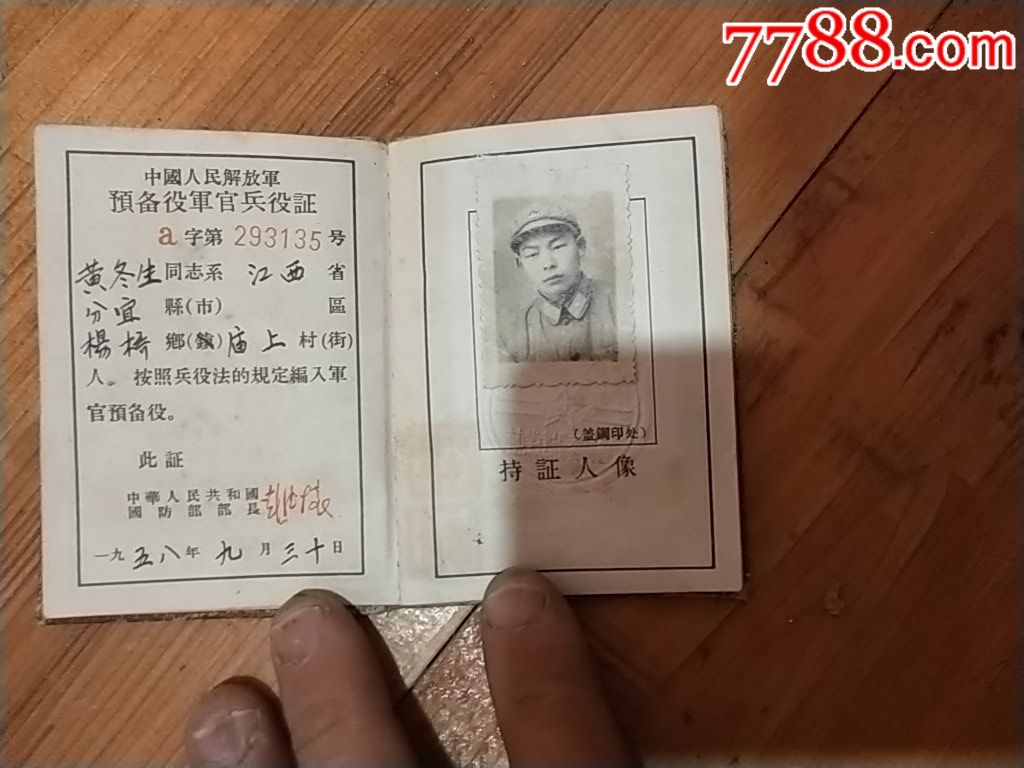 7788.com
中國人民解放軍
預备役軍官兵役証
a字第 293135 号
黄冬生同志系 江西 省
分宜 縣(市) 區
楊桥 鄉(鎮)庙上村(街)
人。按照兵役法的規定編入軍
官預备役。
此証
中華人民共和國
國防部部長
一九五八年九月三十日
(盖鋼印处)
持証人像